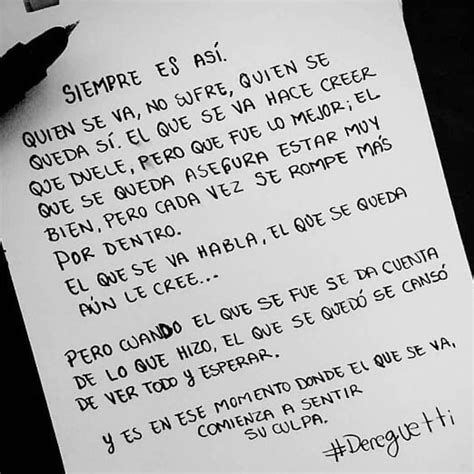 SIEMPRE ES ASÍ.
QUIEN SE VA, NO SUFRE, QUIEN SE
QUEDA SÍ. EL QUE SE VA HACE CREER
QUE DUELE, PERO QUE FUE LO MEJOR; EL
QUE SE QUEDA ASEGURA ESTAR MUY
BIEN, PERO CADA VEZ SE ROMPE MÁS
POR DENTRO.
EL QUE SE VA HABLA, EL QUE SE QUEDA
AÚN LE CREE...
PERO CUANDO EL QUE SE FUE SE DA CUENTA
DE LO QUE HIZO, EL QUE SE QUEDÓ SE CANSÓ
DE VER TODO Y ESPERAR.
Y ES EN ESE MOMENTO DONDE EL QUE SE VA,
COMIENZA A SENTIR
SU CULPA.
#Dereguetti